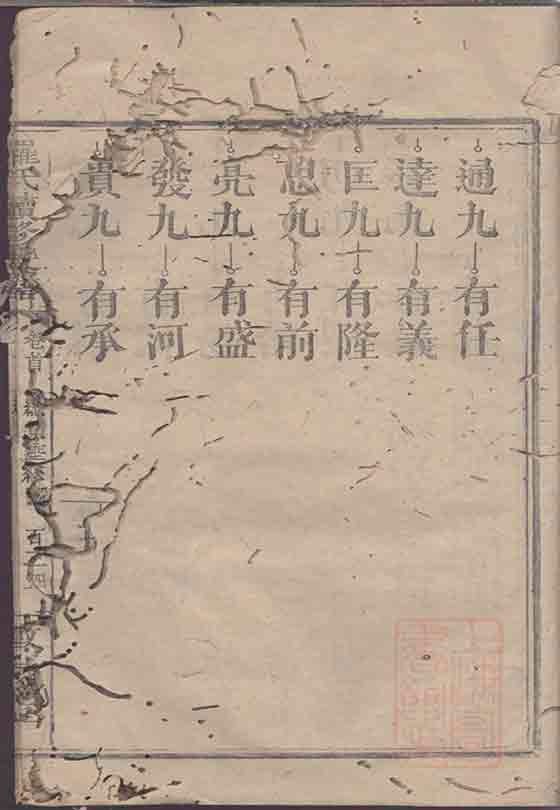 通九 有任
達九 有義
匡九 有隆
忠九 有前
亮九 有盛
發九 有河
貴九 有承
羅氏續修
卷首